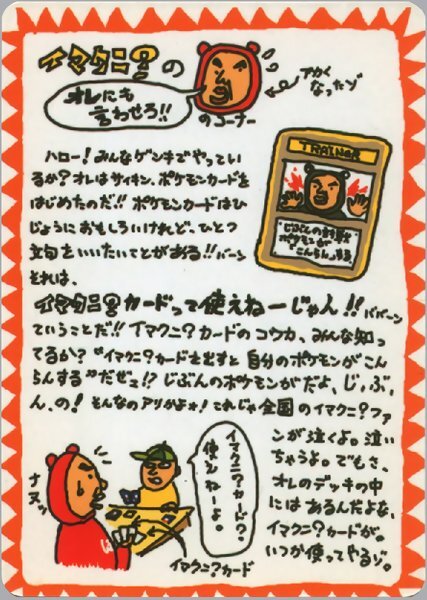 イマクニ?の
アカく
なったゾ
オレにも
言わせろ!!
のコーナー
ハロー!みんなゲンキでやってい
るか?オレはサイキン、ポケモンカードを
はじめたのだ!!ポケモンカードはひ
じょうにおもしろいけれど、ひとつ
文句をいいたいことがある!!バーン
それは、
TRAINER
じぶんの
ポケモンが
こんらんする
イマクニ?カードって使えねーじゃん!!ババーン
ていうことだ!!イマクニ?カードのコウカ、みんな知っ
てるか?〝イマクニ?カードを出すと自分のポケモンがこん
らんする〟だゼェ!?じぶんのポケモンがだよ、じ、ぶ、
ん、の!そんなのアリかよォ!これじゃ全国のイマクニ?ファ
ンが泣くよ。泣い
ちゃうよ。でもさ、
オレのデッキの中
にはあるんだよな、
イマクニ?カードが。
いつか使ってやるゾ。
イマクニ?カード?
使えねーよ。
ナヌッ
イマクニ?カード